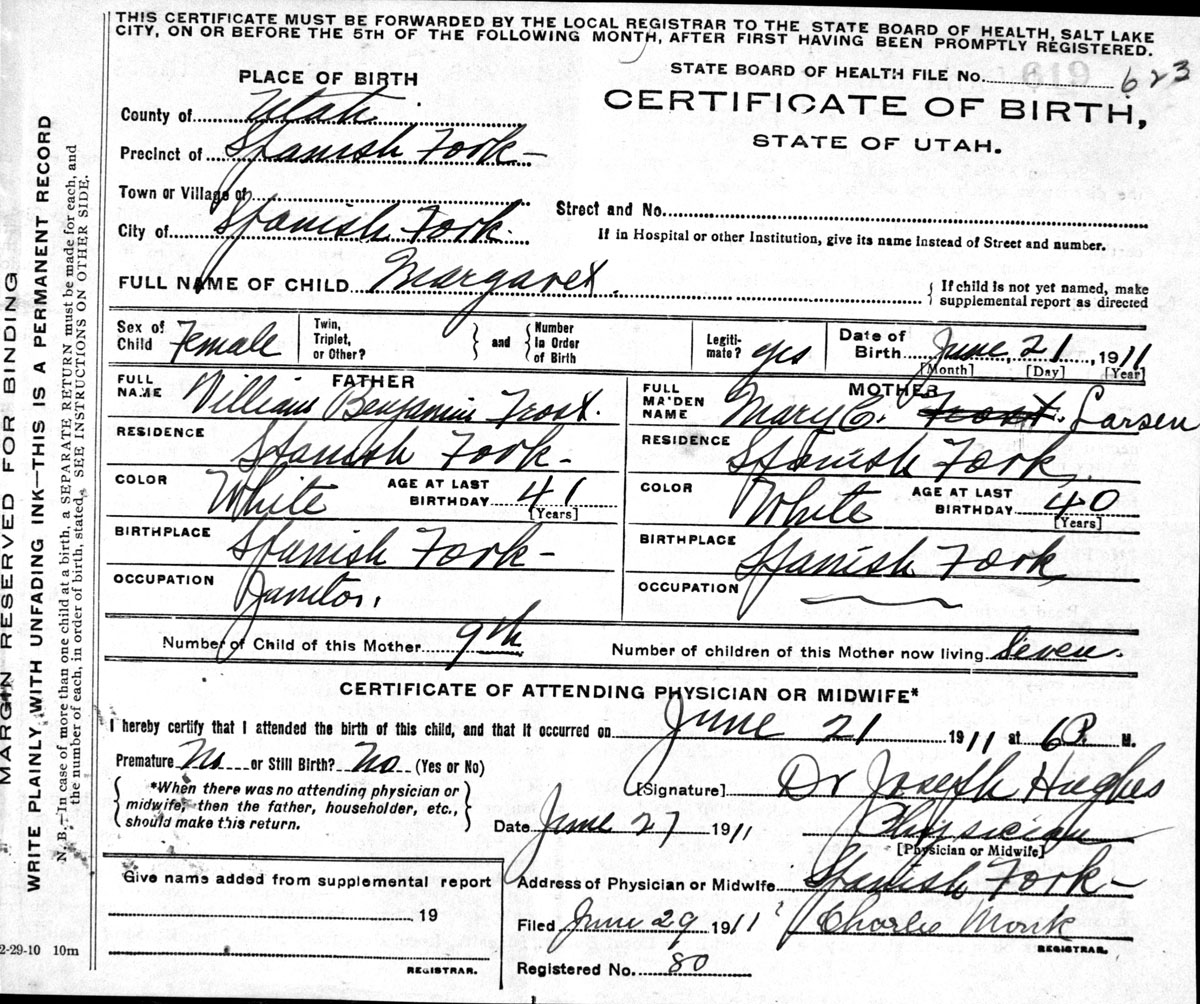 THIS CERTIFICATE MUST BE FORWARDED BY THE LOCAL REGISTRAR TO THE STATE BOARD OF HEALTH, SALT LAKE
CITY, ON OR BEFORE THE 5TH OF THE FOLLOWING MONTH, AFTER FIRST HAVING BEEN PROMPTLY REGISTERED.
PLACE OF BIRTH
STATE BOARD OF HEALTH FILE No. 619 623
CERTIFICATE OF BIRTH,
STATE OF UTAH.
County of Utah.
Precinct of Spanish Fork
Town or Village of
City of Spanish Fork.
Street and No.
If in Hospital or other Institution, give its name instead of Street and number.
FULL NAME OF CHILD Margaret.
If child is not yet named, make
supplemental report as directed
Sex of Child Female
Twin, Triplet, or Other?
and
Number In Order of Birth
Legiti-mate? yes
Date of Birth June 21, 1911
[Month] [Day] [Year]
FATHER
FULL NAME William Benjamin Frost.
RESIDENCE Spanish Fork
COLOR White AGE AT LAST BIRTHDAY 41
[Years]
BIRTHPLACE Spanish Fork
OCCUPATION Janitor.
MOTHER
FULL MAIDEN NAME Mary C. Frost. Larsen
RESIDENCE Spanish Fork
COLOR White AGE AT LAST BIRTHDAY 40
[Years]
BIRTHPLACE Spanish Fork
OCCUPATION
Number of Child of this Mother 9th
Number of children of this Mother now living Seven.
CERTIFICATE OF ATTENDING PHYSICIAN OR MIDWIFE*
I hereby certify that I attended the birth of this child, and that it occurred on June 21 1911 at 6 P. M.
Premature No or Still Birth? No (Yes or No)
*When there was no attending physician or
midwife, then the father, householder, etc.,
should make this return.
[Signature] Dr Joseph Hughes
Date June 27 1911 Physician
[Physician or Midwife]
Give name added from supplemental report
19
REGISTRAR.
Address of Physician or Midwife Spanish Fork
Filed June 29 1911 Charles Monk
REGISTRAR.
Registered No. 80
MARGIN RESERVED FOR BINDING
WRITE PLAINLY WITH UNFADING INK—THIS IS A PERMANENT RECORD
N. B.—In case of more than one child at a birth, a SEPARATE RETURN must be made for each, and
the number of each, in order of birth, stated. SEE INSTRUCTIONS ON OTHER SIDE.
2-29-10 10m